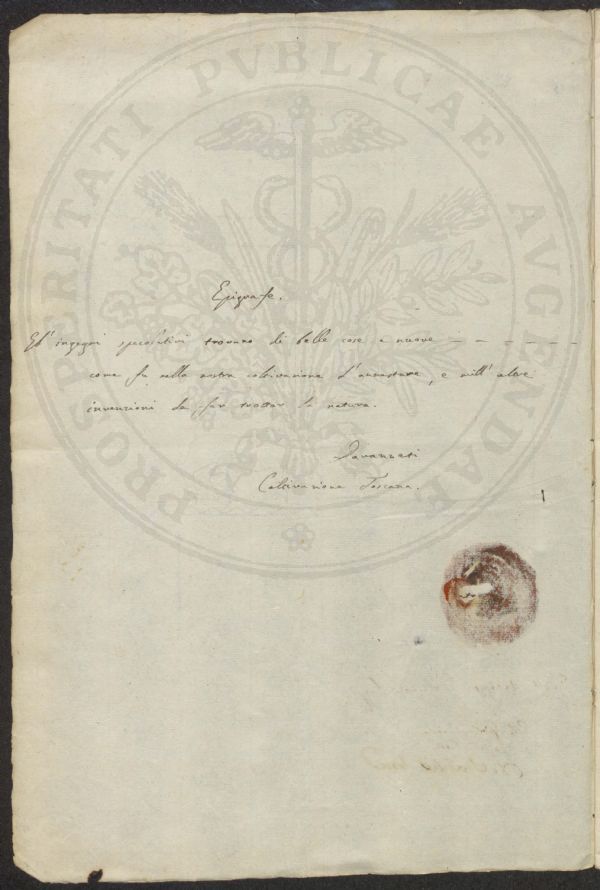 PROSPERITATI PVBLICAE AVGENDAE
Epigrafe.
Gl' ingegni specolativi trovano di belle cose e nuove — — — — — —
come fu nella nostra coltivazione l' annestare, e mill' altre
invenzioni da far trottar la natura.
Davanzati
Coltivazione Toscana.